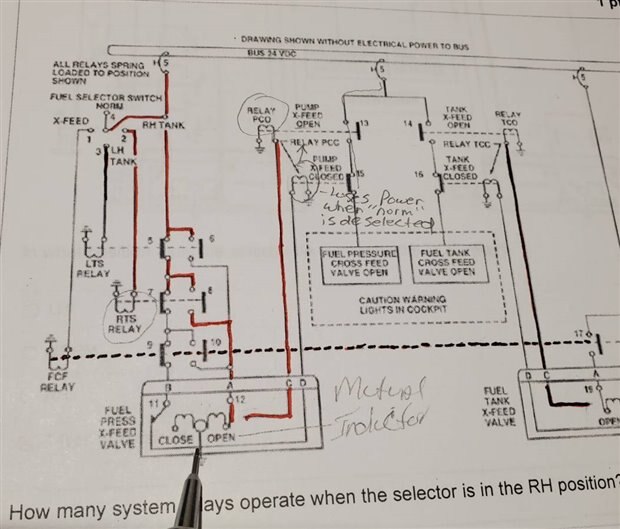 DRAWING SHOWN WITHOUT ELECTRICAL POWER TO BUS
BUS 24 VDC
5
5
5
ALL RELAYS SPRING
LOADED TO POSITION
SHOWN
FUEL SELECTOR SWITCH
NORM
4
X-FEED
RH TANK
1
2
3
LH
TANK
RELAY
PCO
PUMP
X-FEED
OPEN
13
14
TANK
X-FEED
OPEN
RELAY
TCO
RELAY PCC
RELAY TCC
PUMP
X-FEED
CLOSED
15
16
TANK
X-FEED
CLOSED
Loses Power
when "norm"
is deselected
5
6
LTS
RELAY
FUEL PRESSURE
CROSS FEED
VALVE OPEN
FUEL TANK
CROSS FEED
VALVE OPEN
7
8
RTS
RELAY
CAUTION WARNING
LIGHTS IN COCKPIT
9
10
17
FCF
RELAY
B
A
C
D
D
C
A
11
12
FUEL
PRESS
X-FEED
VALVE
CLOSE
OPEN
Mutual
Inductor
FUEL
TANK
X-FEED
VALVE
How many system
ays operate when the selector is in the RH position?